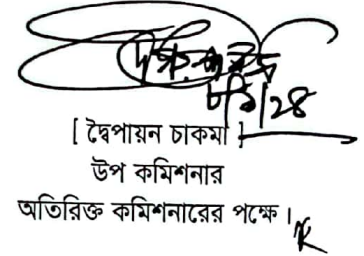 ৮/১/২৪
[ দ্বৈপায়ন চাকমা ]
উপ কমিশনার
অতিরিক্ত কমিশনারের পক্ষে।